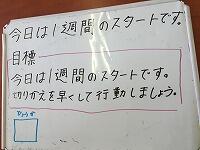 今日は1週間のスタートです。
目標
今日は1週間のスタートです。
切りかえを早くして行動しましょう。